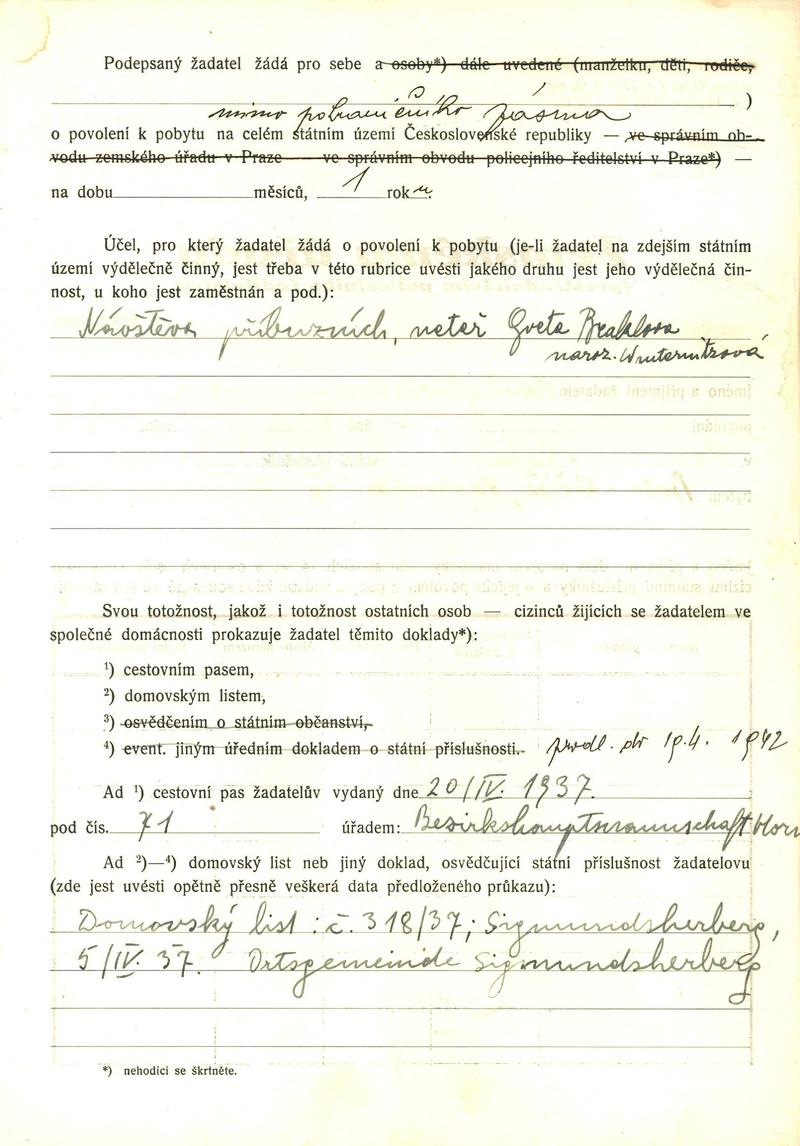 Podepsaný žadatel žádá pro sebe a osoby*) dále uvedené (manželku, děti, rodiče,
)
mimo pohraničního pásma
o povolení k pobytu na celém státním území Československé republiky — ve správním ob-
vodu zemského úřadu v Praze — ve správním obvodu policejního ředitelství v Praze*) —
na dobu měsíců, 1 roku.
Účel, pro který žadatel žádá o povolení k pobytu (je-li žadatel na zdejším státním
území výdělečně činný, jest třeba v této rubrice uvésti jakého druhu jest jeho výdělečná čin-
nost, u koho jest zaměstnán a pod.):
Návštěva příbuzních, neteř Greta
naroz. Winternitzová
Svou totožnost, jakož i totožnost ostatních osob — cizinců žijících se žadatelem ve
společné domácnosti prokazuje žadatel těmito doklady*):
¹) cestovním pasem,
²) domovským listem,
³) osvědčením o státním občanství,
⁴) event. jiným úředním dokladem o státní příslušnosti. prodl. do 19.4. 1942
Ad ¹) cestovní pas žadatelův vydaný dne 20/IV. 1937.
pod čís. 71 úřadem: Bezirkshauptmannschaft Horn
Ad ²)—⁴) domovský list neb jiný doklad, osvědčující státní příslušnost žadatelovu
(zde jest uvésti opětně přesně veškerá data předloženého průkazu):
Domovský list : č. 318/37; Sigmundsherberg,
5/IV. 37. Ortsgemeinde Sigmundsherberg
*) nehodící se škrtněte.